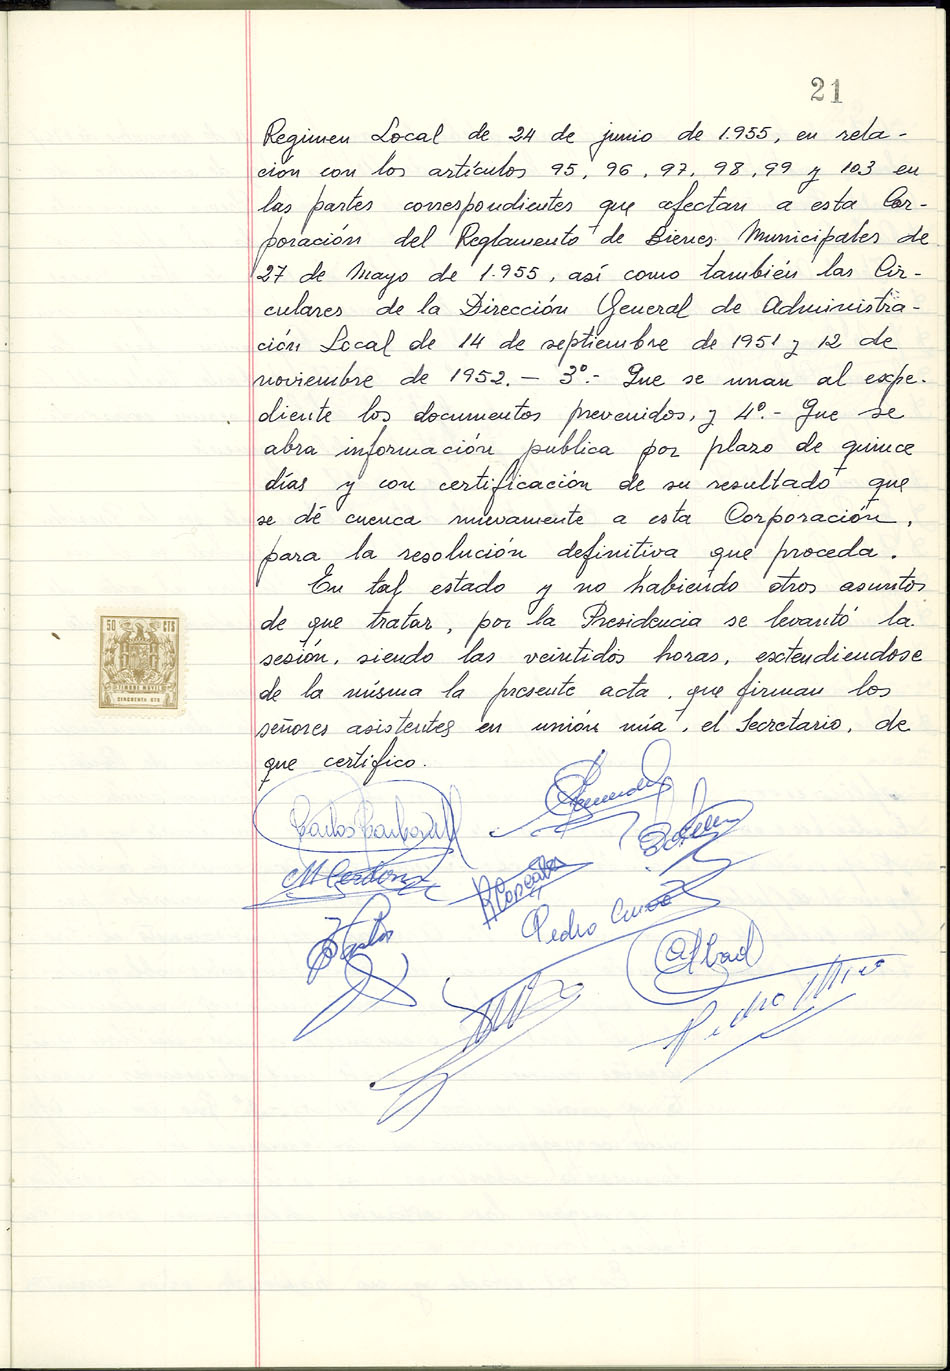 21
Regimen Local de 24 de junio de 1.955, en rela-
ción con los artículos 95, 96, 97, 98, 99 y 103 en
las partes correspondientes que afectan a esta Cor-
poración del Reglamento de Bienes Municipales de
27 de Mayo de 1.955, así como también las Cir-
culares de la Dirección General de Administra-
ción Local de 14 de septiembre de 1951 y 12 de
noviembre de 1952.- 3º.- Que se unan al expe-
diente los documentos prevenidos, y 4º.- Que se
abra información publica por plazo de quince
días y con certificación de su resultado que
se dé cuenca nuevamente a esta Corporación,
para la resolución definitiva que proceda.
En tal estado y no habiendo otros asuntos
de que tratar, por la Presidencia se levantó la
sesión, siendo las veintidos horas, extendiendose
de la misma la presente acta, que firman los
señores asistentes en unión mía, el Secretario, de
que certifico.
50 CTS
TIMBRE MOVIL
CINCUENTA CTS
Carlos Carbonell
M Cardona
Pedro
Abad
Pedro Miró